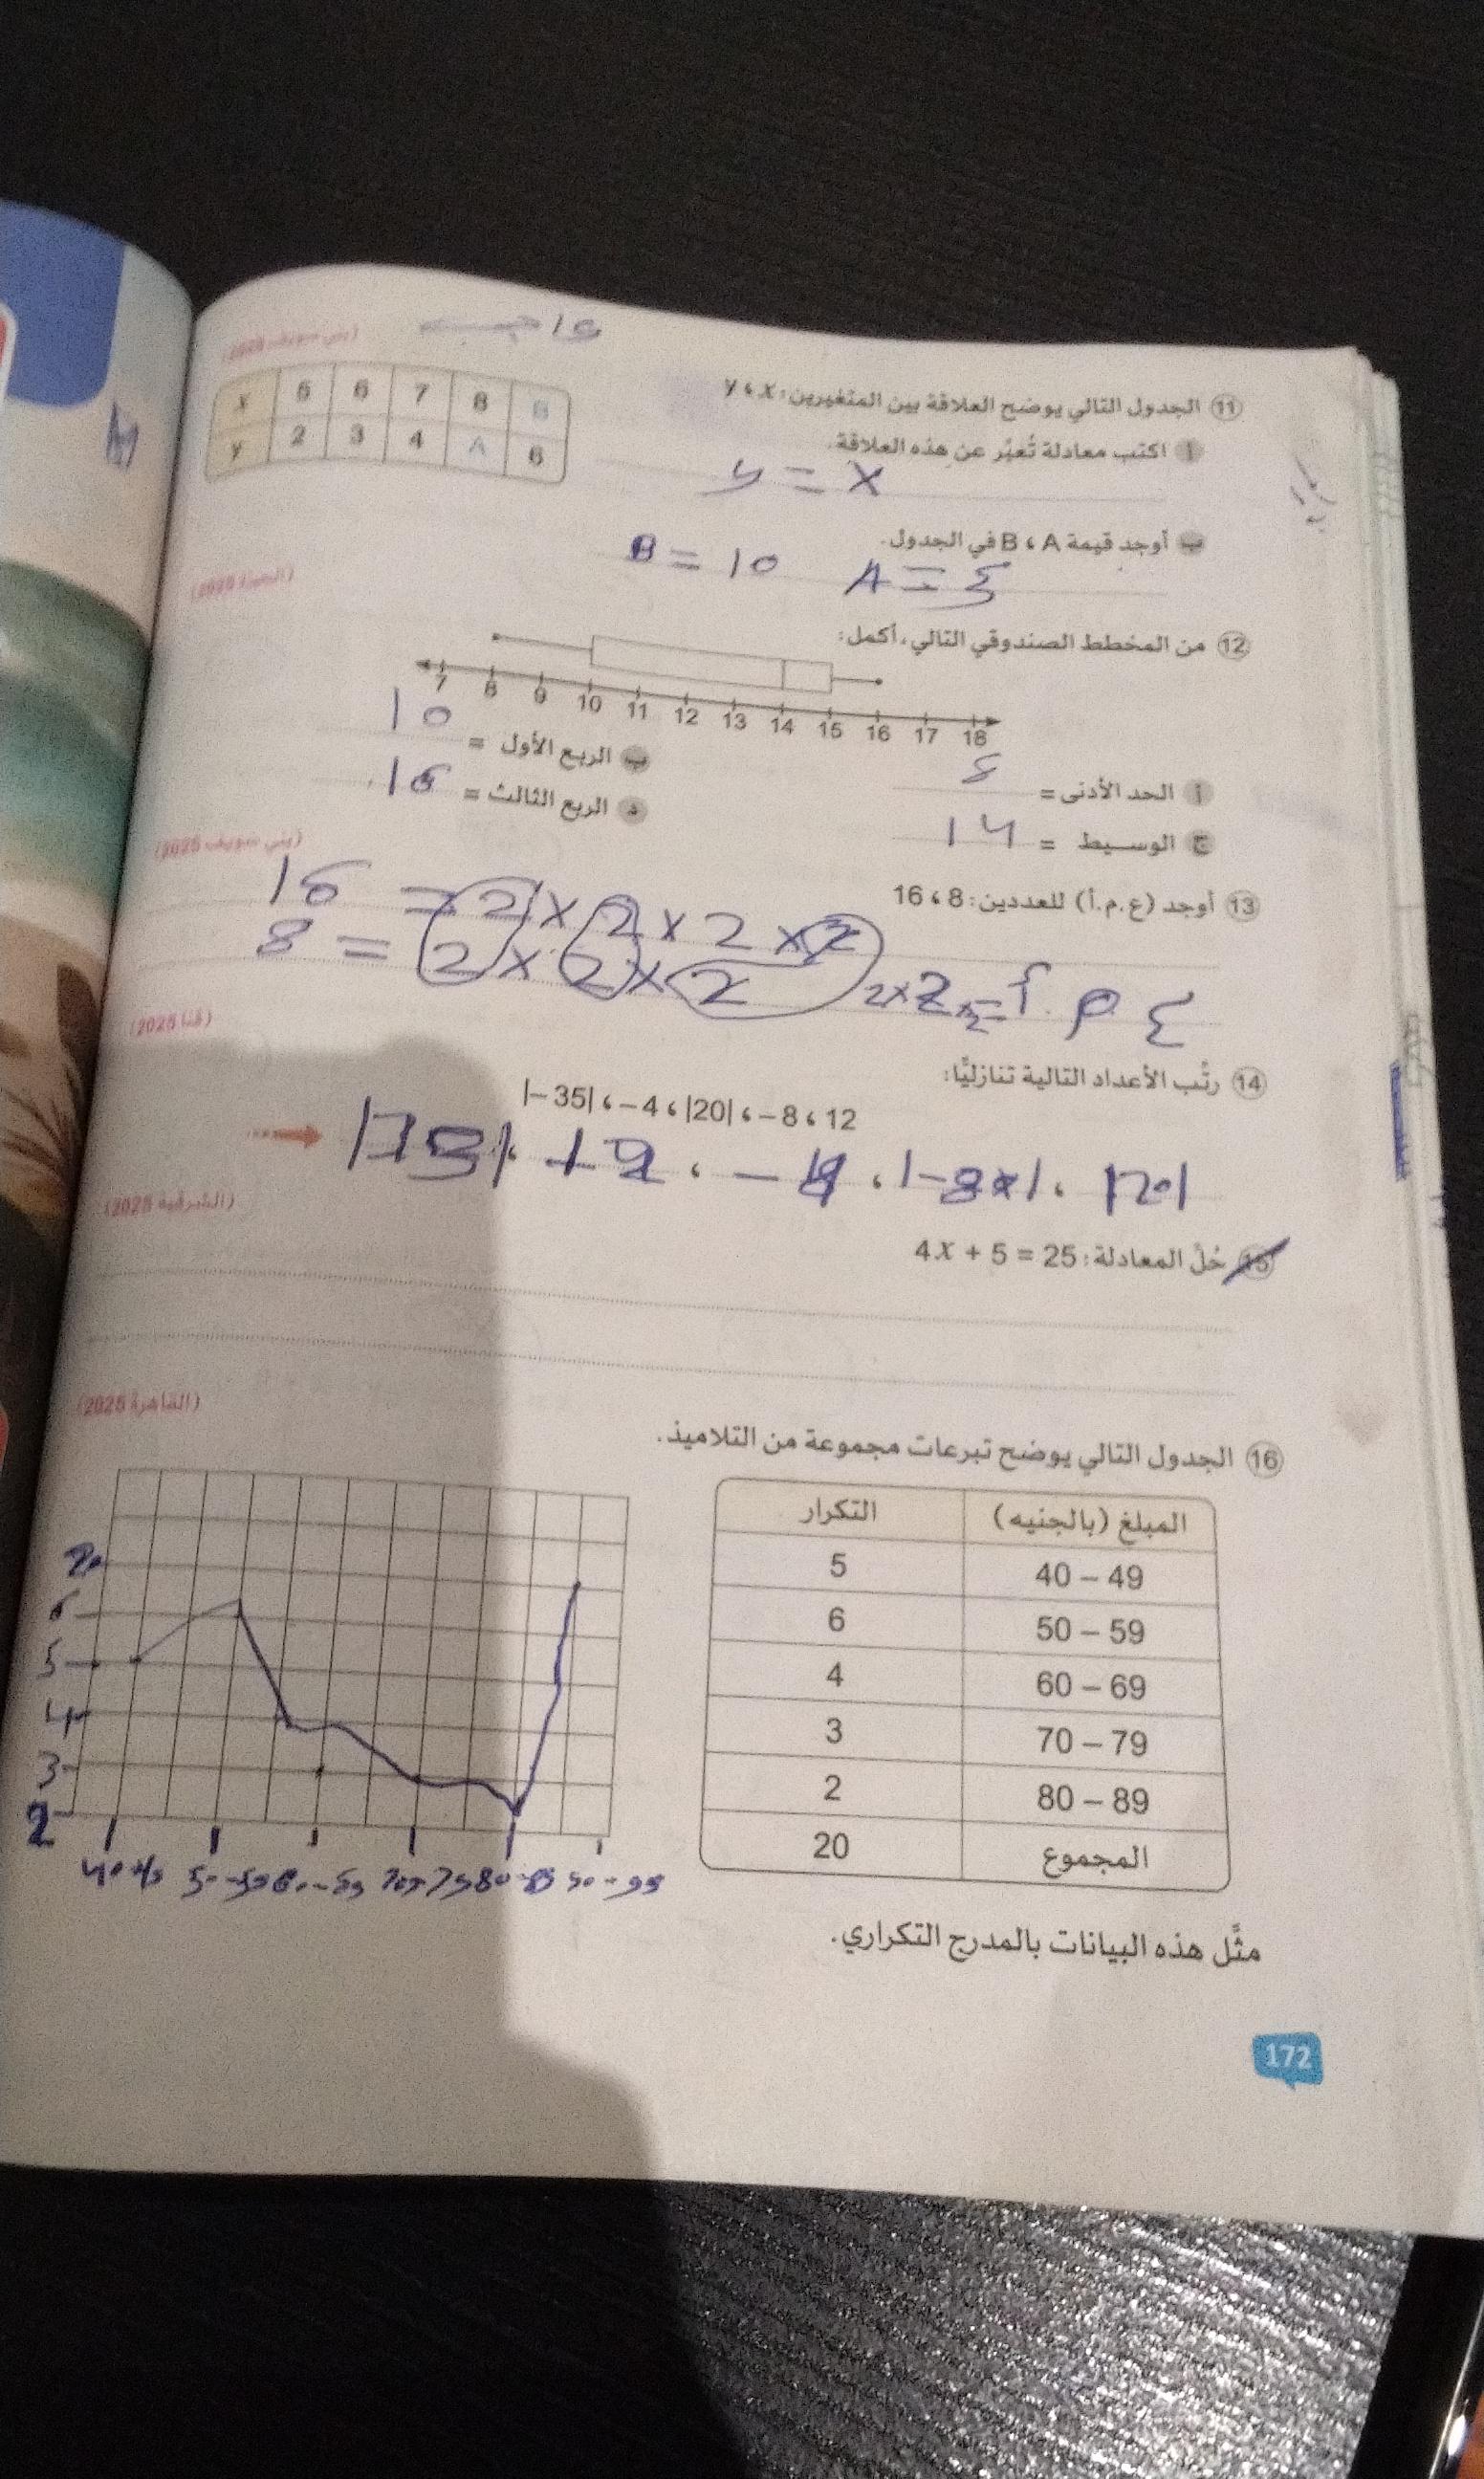 (بني سويف 2025)
⑪ الجدول التالي يوضح العلاقة بين المتغيرين: y ، x
x 5 6 7 8 B
y 2 3 4 A 6
أ اكتب معادلة تُعبِّر عن هذه العلاقة.
y = x
ب أوجد قيمة B ، A في الجدول.
B = 10 A =
(الجيزة 2025)
⑫ من المخطط الصندوقي التالي، أكمل:
7 8 9 10 11 12 13 14 15 16 17 18
أ الحد الأدنى = 8
ب الربع الأول = 10
ج الوسيط = 14
د الربع الثالث =
(بني سويف 2025)
⑬ أوجد (ع.م.أ) للعددين: 8 ، 16
16 = 2 × 2 × 2 × 2
8 = 2 × 2 × 2
ع م أ = 2 × 2 × 2
(قنا 2025)
⑭ رتِّب الأعداد التالية تنازليًّا:
|−35| ، −4 ، |20| ، −8 ، 12
|20|
(الشرقية 2025)
⑮ حُلَّ المعادلة: 4x + 5 = 25
(القاهرة 2025)
⑯ الجدول التالي يوضح تبرعات مجموعة من التلاميذ.
المبلغ (بالجنيه) التكرار
40 – 49 5
50 – 59 6
60 – 69 4
70 – 79 3
80 – 89 2
المجموع 20
20
6
5
4
3
2
مثِّل هذه البيانات بالمدرج التكراري.
172